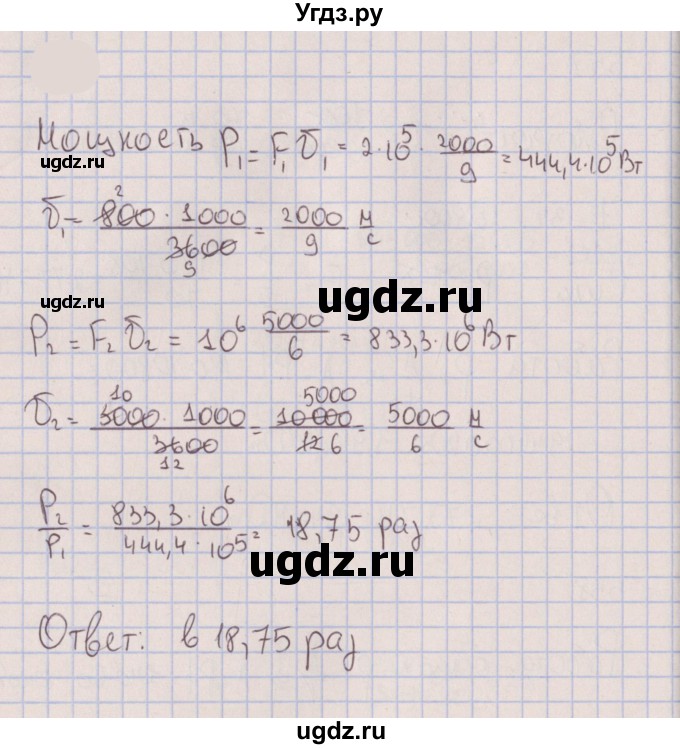 Угдз.ру
Мощность P₁ = F₁ v₁ = 2·10⁵ · 2000/9 = 444,4·10⁵ Вт
ugdz.ru
v₁ = 800 · 1000 / 3600 = 2000/9 м/с
2
9
ugdz.ru
ugdz.ru
P₂ = F₂ v₂ = 10⁶ 5000/6 = 833,3·10⁶ Вт
v₂ = 3000 · 1000 / 3600 = 10000 / 12 6 = 5000/6 м/с
10
12
5000
ugdz.ru
P₂/P₁ = 833,3·10⁶ / 444,4·10⁵ = 18,75 раз
ugdz.ru
ugdz.ru
Ответ: в 18,75 раз
ugdz.ru
ugdz.ru